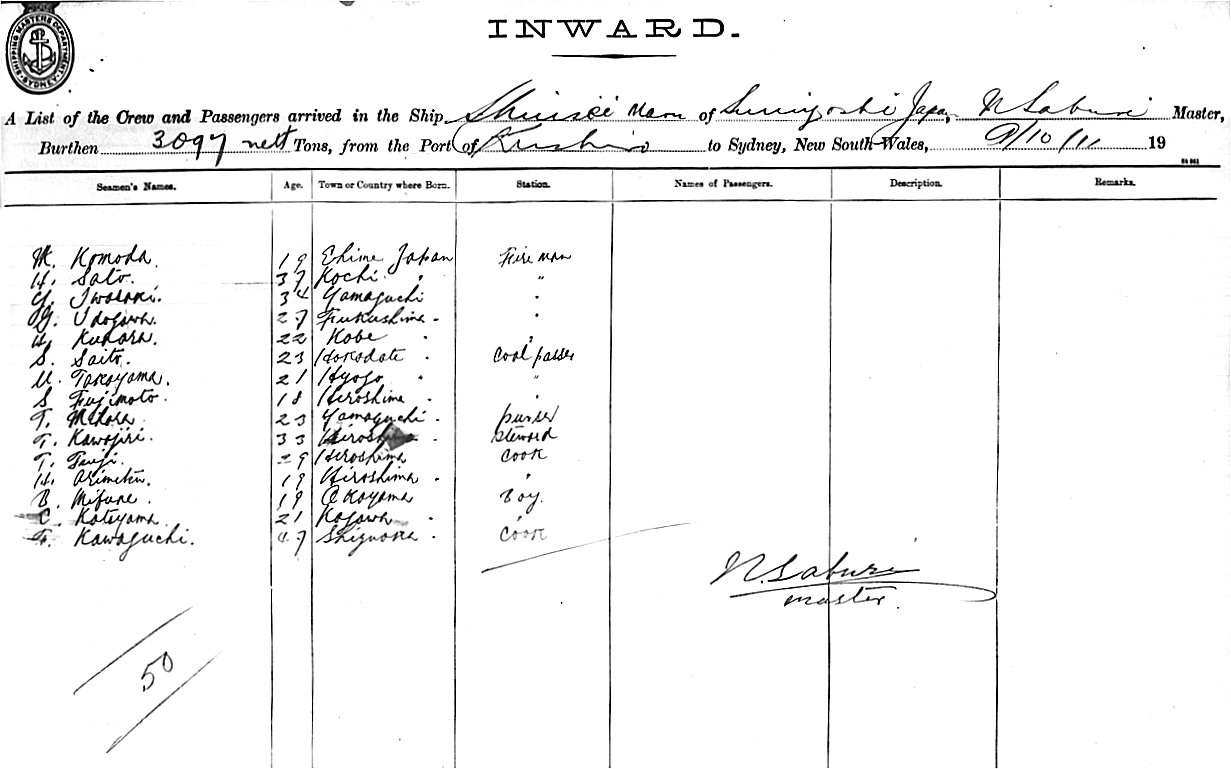 SHIPPING MASTERS DEPARTMENT SYDNEY
INWARD.
A List of the Crew and Passengers arrived in the Ship Shinsei Maru of Sumiyoshi Japan, N Saburi Master,
Burthen 3097 nett Tons, from the Port of Kushiro to Sydney, New South Wales, 9/10/11 19
Seamen's Names. Age. Town or Country where Born. Station. Names of Passengers. Description. Remarks.
M. Komoda. 19 Ehime Japan Fireman
H. Sato. 37 Kochi " "
Y. Iwasaki. 34 Yamaguchi "
Udogawa. 27 Fukushima " "
H. Kuhara. 22 Kobe " "
S. Saito. 23 Hakodate " Coal passer
U. Takayama. 21 Hyogo " "
S. Fujimoto. 18 Hiroshima " "
T. Mihara. 23 Yamaguchi " purser
T. Kawajiri. 33 Hiroshima " Steward
T. Tsuji. 29 Hiroshima Cook
H. Arimitsu. 19 Hiroshima " "
B. Mifune. 19 Okayama Boy.
C. Katayama 21 Kagawa " "
T. Kawaguchi. 47 Shizuoka " Cook
N. Saburi
Master.
50